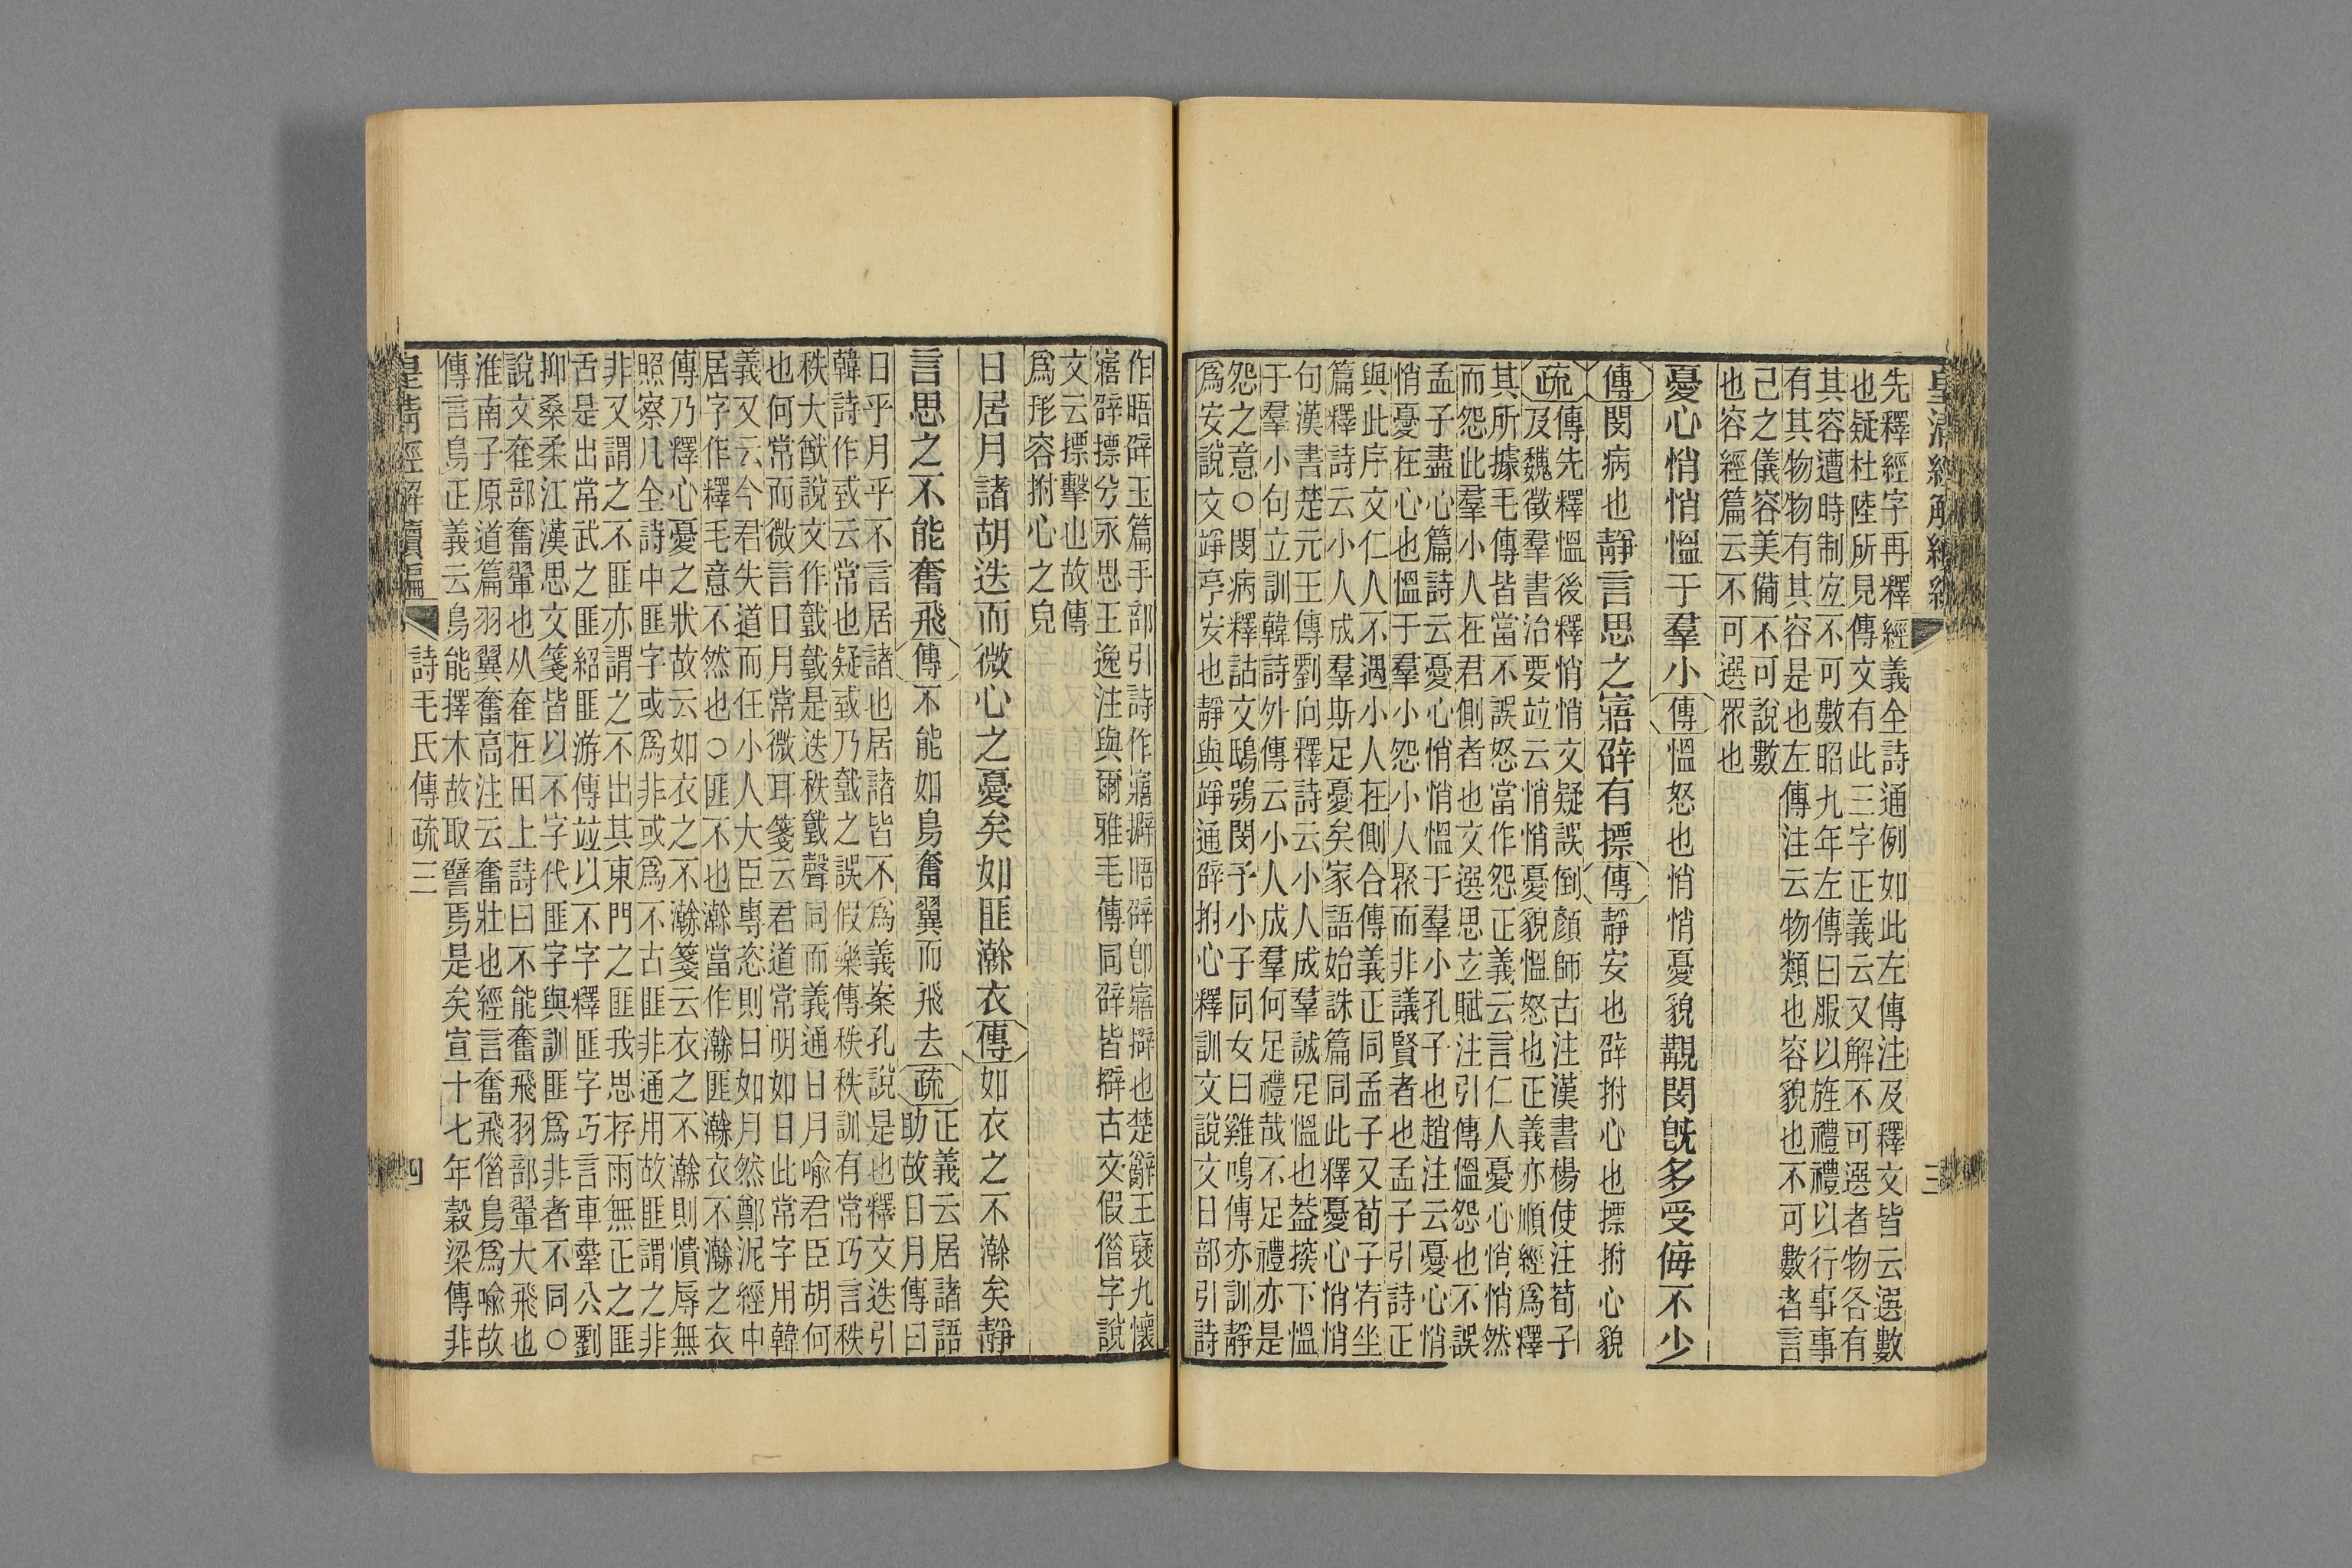 先釋經字再釋經義全詩通例如此左傳注及釋文皆云選數
也疑杜陸所見傳文有此三字正義云又解不可選者物各有
其容遭時制宐不可數昭九年左傳曰服以旌禮禮以行事事
有其物物有其容是也左傳注云物類也容貌也不可數者言
己之儀容美備不可說數
也容經篇云不可選眾也
憂心悄悄慍于羣小傳慍怒也悄悄憂貌覯閔旣多受侮不少
傳閔病也靜言思之寤辟有摽傳靜安也辟拊心也摽拊心貌
疏傳先釋慍後釋悄悄文疑誤倒顏師古注漢書楊使注荀子
及魏徵羣書治要竝云悄悄憂貌慍怒也正義亦順經爲釋
其所據毛傳皆當不誤怒當作怨正義云言仁人憂心悄悄然
而怨此羣小人在君側者也文選思立賦注引傳慍怨也不誤
孟子盡心篇詩云憂心悄悄慍于羣小孔子也趙注云憂心悄
悄憂在心也慍于羣小怨小人聚而非議賢者也孟子引詩正
與此序文仁人不遇小人在側合傳義正同孟子又荀子宥坐
篇釋詩云小人成羣斯足憂矣家語始誅篇同此釋憂心悄悄
句漢書楚元王傳劉向釋詩云小人成羣誠足慍也葢揬下慍
于羣小句立訓韓詩外傳云小人成羣何足禮哉不足禮亦是
怨之意○閔病釋詁文鴟鴞閔予小子同女曰雞鳴傳亦訓靜
爲安說文竫亭安也靜與竫通辟拊心釋訓文說文日部引詩
作晤辟玉篇手部引詩作寤擗晤辟卽寤擗也楚辭王襃九懷
寤辟摽兮永思王逸注與爾雅毛傳同辟皆擗古文假借字說
文云摽擊也故傳
爲形容拊心之皃
日居月諸胡迭而微心之憂矣如匪澣衣傳如衣之不澣矣靜
言思之不能奮飛傳不能如鳥奮翼而飛去疏正義云居諸語
助故日月傳曰
日乎月乎不言居諸也居諸皆不爲義案孔說是也釋文迭引
韓詩作䟴云常也疑䟴乃戜之誤假樂傳秩秩訓有常巧言秩
秩大猷說文作戜戜是迭秩戜聲同而義通日月喻君臣胡何
也何常而微言日月常微耳箋云君道常明如日此常字用韓
義又云今君失道而任小人大臣專恣則日如月然鄭泥經中
居字作釋毛意不然也○匪不也澣當作瀚匪瀚衣不瀚之衣
傳乃釋心憂之狀故云如衣之不瀚箋云衣之不瀚則憒辱無
照察凡全詩中匪字或爲非或爲不古匪非通用故匪謂之非
非又謂之不匪亦謂之不出其東門之匪我思存雨無正之匪
舌是出常武之匪紹匪游傳竝以不字釋匪字巧言車舝公劉
抑桑柔江漢思文箋皆以不字代匪字與訓匪爲非者不同○
說文奞部奮翬也从奞在田上詩曰不能奮飛羽部翬大飛也
淮南子原道篇羽翼奮高注云奮壯也經言奮飛借鳥爲喻故
傳言鳥正義云鳥能擇木故取譬焉是矣宣十七年穀梁傳非
皇淸經解續編 詩毛氏傳疏三 四